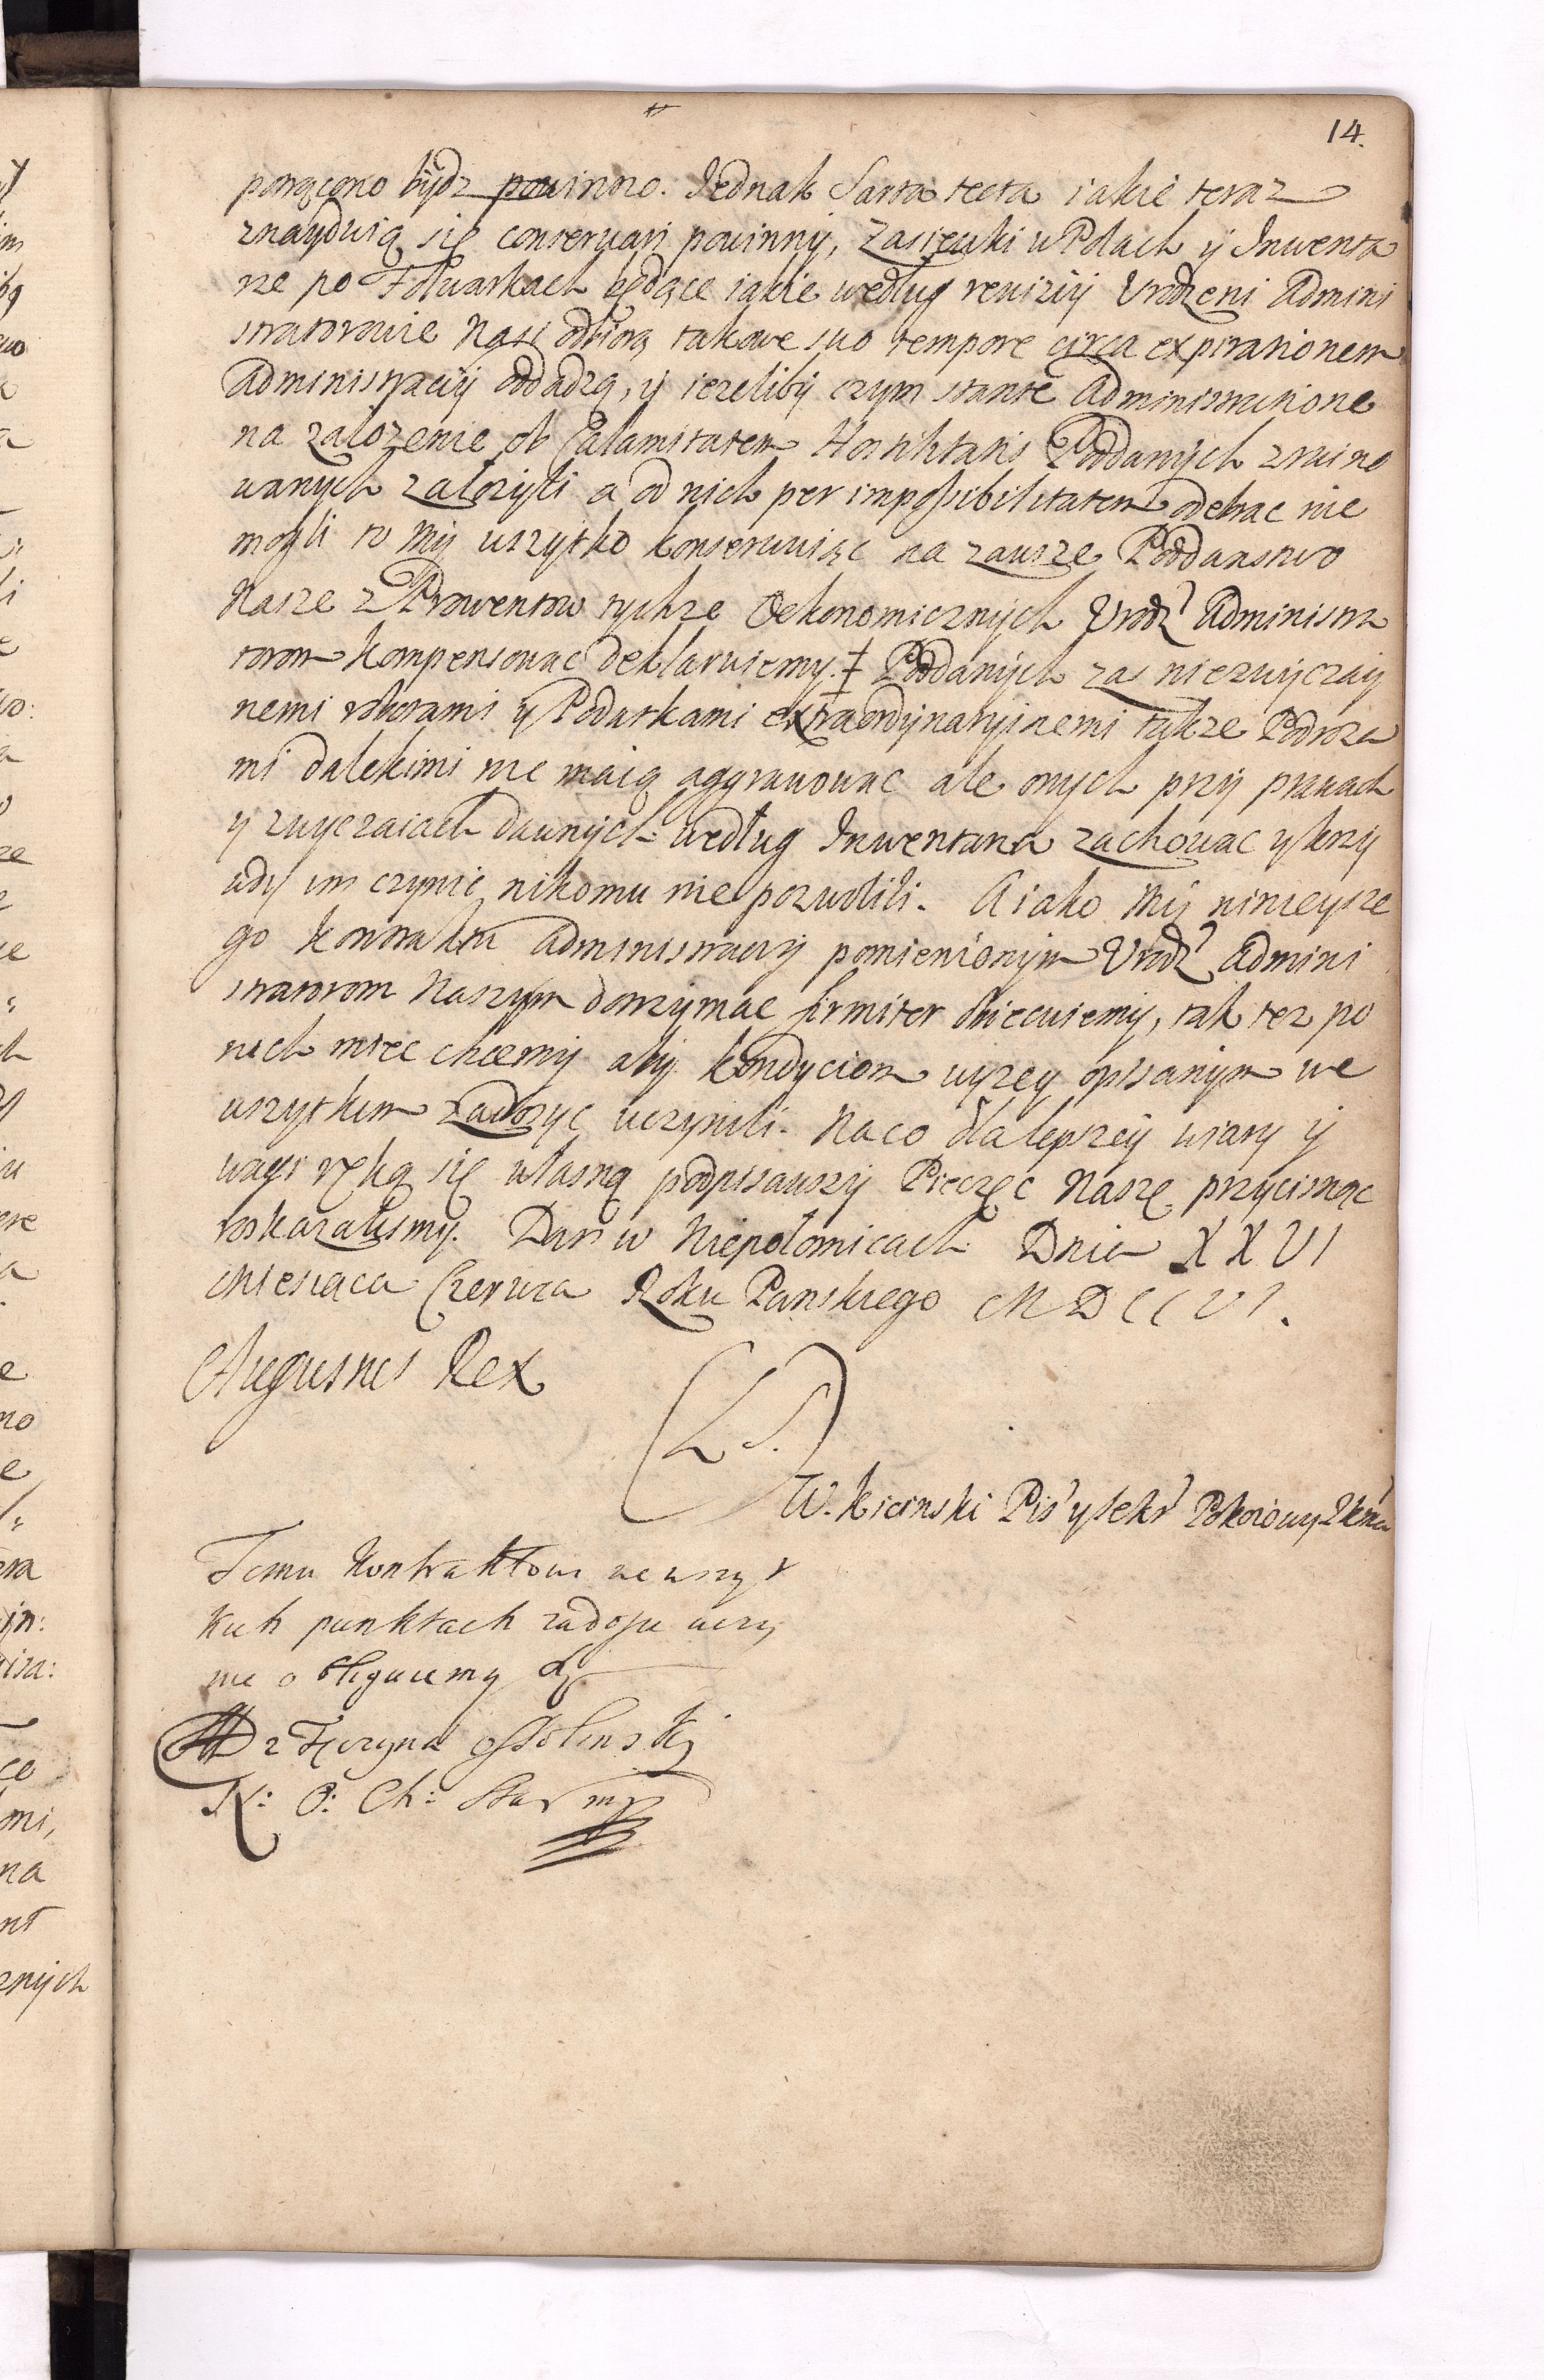 14.
porącono bydz powinno. Jednak Sarta tecta iakie teraz
znayduią się conseruari powinny, Zasiewki w Polach y Inwenta
rze po Folwarkach będące iakie według rewizyi Urodzeni Admini
stratorowie Nasi odbiorą takowe suo tempore circa expirationem
Administracyi oddadzą, y ieżeliby czym stante Administratione
na założenie ob Calamitatem Hostilitatis Poddanych zruino
wanych założyli a od nich per impossibilitatem odebrac nie
mogli to My wszytko konserwuiąc na zawsze Poddanstwo
Nasze z Prowentow tychze Oekonomicznych Urodz Administra
torom kompensowac deklaruiemy. ‡ Poddanych zas niezwyczay
nemi roborami y Podatkami extraordynaryinemi także Podroza
mi dalekimi nie maią aggrauowac ale onych przy prawach
y zwyczaiach dawnych według Inwentarza zachowac y krzy
wdy im czynic nikomu nie pozwolili. A iako My ninieysze
go kontraktu Administracyi pomienionym Urodz Admini
stratorom Naszym dotrzymac firmiter obiecuiemy, tak tez po
nich miec chcemy aby kondyciom wyzey opisanym we
wszytkim zadosyc uczynili. Na co dla lepszey wiary y
wagi ręką się własną podpisawszy Pieczęc Naszę przycisnąc
roskazalismy. Dan w Niepołomicach Dnia XXVI
Miesiąca Czerwca Roku Panskiego MDCCVI.
Augustus Rex
(L S.)
W. Kicinski Pis y Sekr Pokoiowy JKMci
Temu Kontraktowi we wszyt
kich punktach zadosyc uczy
nic obliguiemy się
z Tęczyna Ossolinsky
K: O: Ch: Star mp